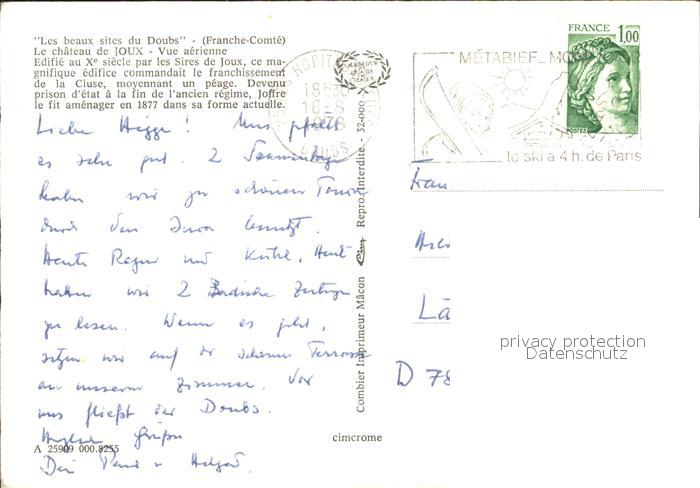 "Les beaux sites du Doubs" - (Franche-Comté)
Le château de JOUX - Vue aérienne
Edifié au Xe siècle par les Sires de Joux, ce ma-
gnifique édifice commandait le franchissement
de la Cluse, moyennant un péage. Devenu
prison d'état à la fin de l'ancien régime, Joffre
le fit aménager en 1877 dans sa forme actuelle.
Liebe ! Uns gefällt
es sehr gut. 2 Sonnentage
haben wir zu schönen Touren
durch den Jura benutzt.
Heute Regen und Kühle. Heut
hatten wir 2 Badische Zeitungen
zu lesen. Wenn es geht,
sitzen wir auf der schönen Terrasse
an unserem Zimmer. Vor
uns fließt der Doubs.
Herzliche Grüße
Dein u.
A 25909 000.8255
Combier Imprimeur Mâcon Cim Repro. Interdite - 32-000
cimcrome
HOPITA
18
1978
DOUBS
MÉTABIEF_MO
le ski à 4 h. de Paris
FRANCE 1,00
POSTES
Frau
Lä
D 78
privacy protection
Datenschutz